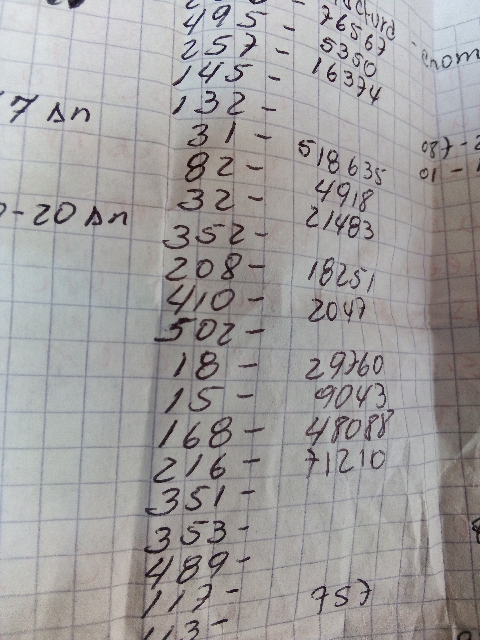 495 - 76567
257 - 5350
145 - 16374
132 -
31 -
82 - 518635
32 - 4918
-20
352 - 21483
208 - 18251
410 - 2047
502 -
18 - 29760
15 - 9043
168 - 48088
216 - 71210
351 -
353 -
489 -
117 - 757
113 -